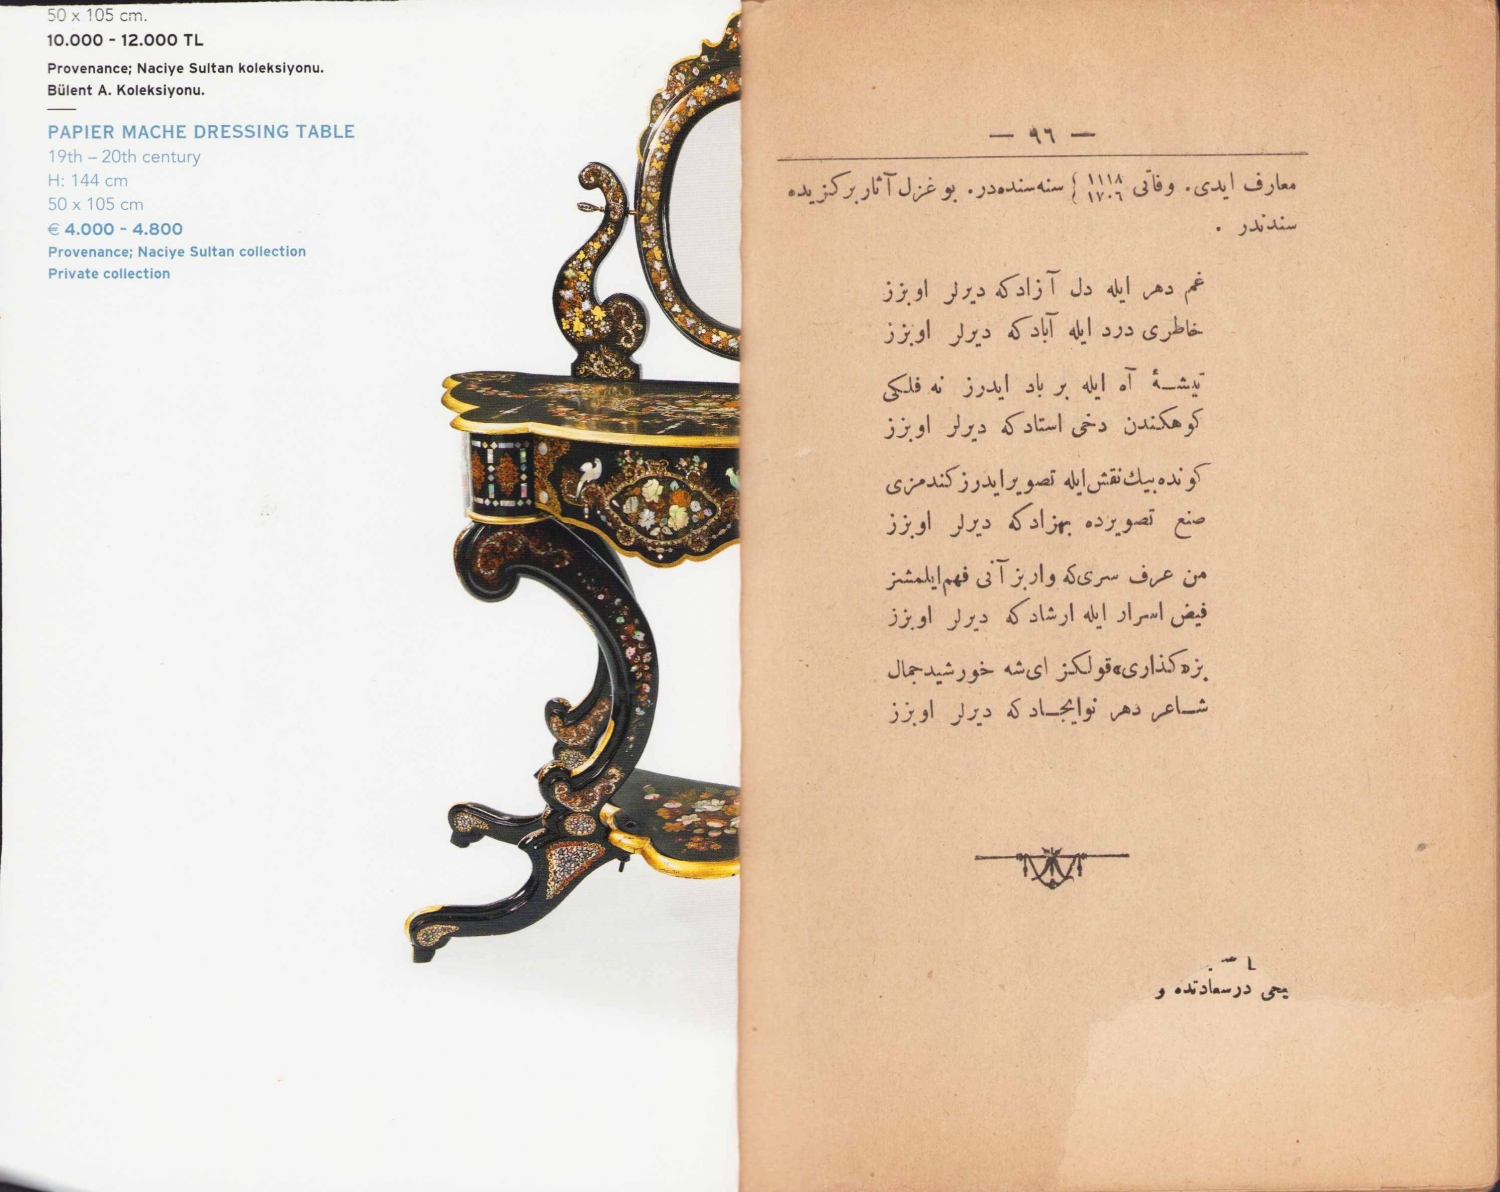 50 x 105 cm.
10.000 - 12.000 TL
Provenance; Naciye Sultan koleksiyonu.
Bülent A. Koleksiyonu.
PAPIER MACHE DRESSING TABLE
19th – 20th century
H: 144 cm
50 x 105 cm
€ 4.000 - 4.800
Provenance; Naciye Sultan collection
Private collection
— ٩٦ —
معارف ایدی. وفاتی { ١١١٨ ١٧٠٦ } سنه‌سنده‌در. بو غزل آثار برکزیده
سندندر .
غم دهر ایله دل آزاد که دیرلر اوبزز
خاطری درد ایله آباد که دیرلر اوبزز
تیشۀ آه ایله بر باد ایدرز نه فلکی
کوهکندن دخی استاد که دیرلر اوبزز
کونده بیك نقش ایله تصویر ایدرز کندمزی
صنع تصویرده بهزاد که دیرلر اوبزز
من عرف سری که واربز آنی فهم ایلمشز
فیض اسرار ایله ارشاد که دیرلر اوبزز
بزه کذاری قولکز ای شه خورشید جمال
شاعر دهر نوایجاد که دیرلر اوبزز
یحی درسعادتده و